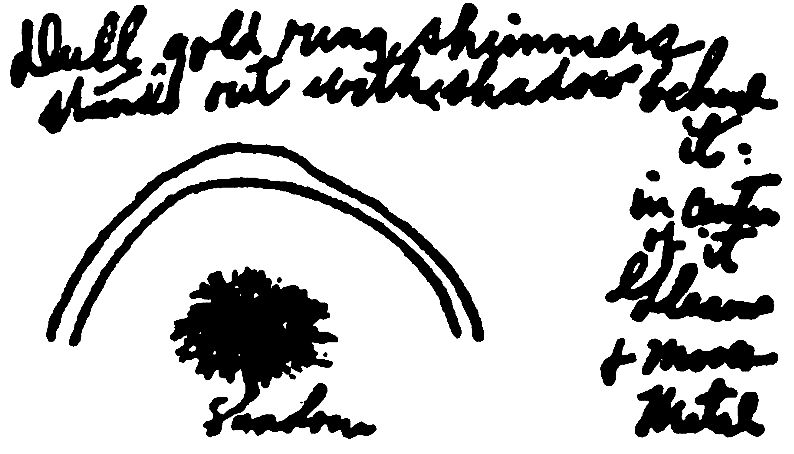 Dull gold ring, shimmers
stands out with shadow behind
it :
in center
of it
gleams
& moves
Metal
Shadow